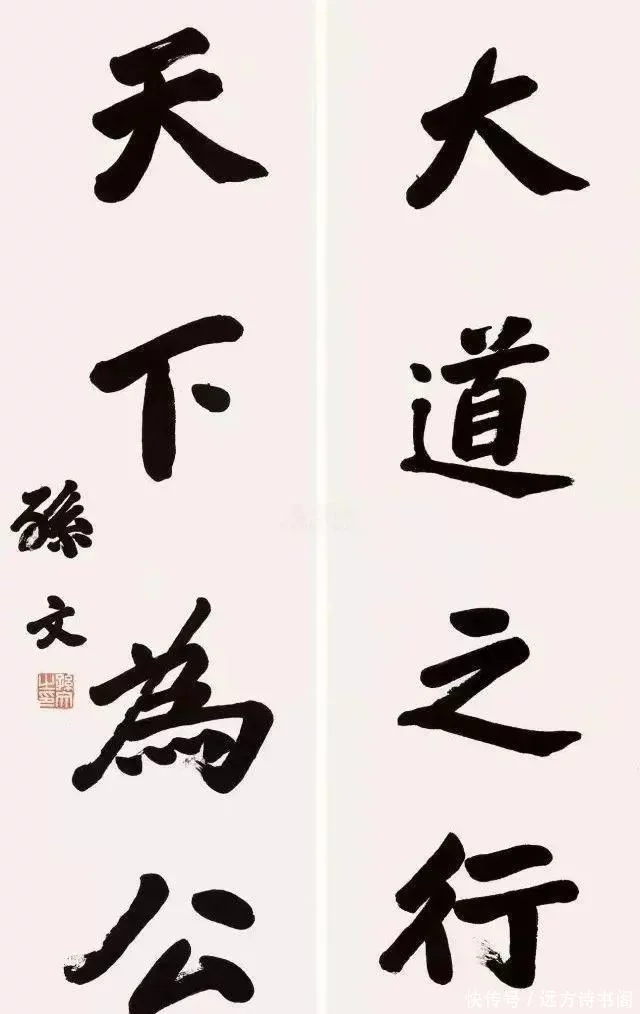 大道之行
天下為公
孫文
孫文之印
快传号／远方诗书阁